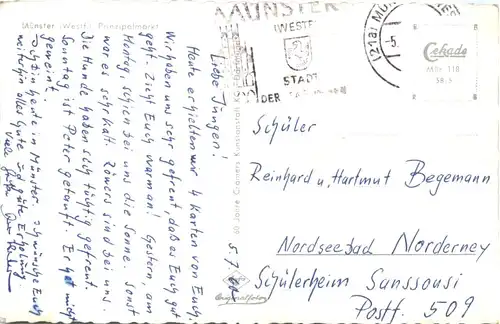 Münster (Westf.) Prinzipalmarkt
Liebe Jungen!
Heute erhielten wir 4 Karten von Euch.
Wir haben uns sehr gefreut, daß es Euch gut
geht. Zieht Euch warm an! Gestern, am
Montag, schien bei uns die Sonne. Sonst
war es sehr kalt. Löwers sind bei uns.
Die Hunde haben sich tüchtig gefreut.
Sonntag ist Peter getauft. Er hat nicht
geweint.
Ich bin heute in Münster. Ich wünsche Euch
weiterhin alles Gute und gute Erholung.
Viele Grüße
60 Jahre Cramers Kunstanstalt KG
Originalfoto
MÜNSTER
(WESTF
STADT
DER
(21a) MÜ
-5.
Cekade
Mür 118
Schüler
Reinhard u. Hartmut Begemann
Nordseebad Norderney
Schülerheim Sanssousi
Postf. 509